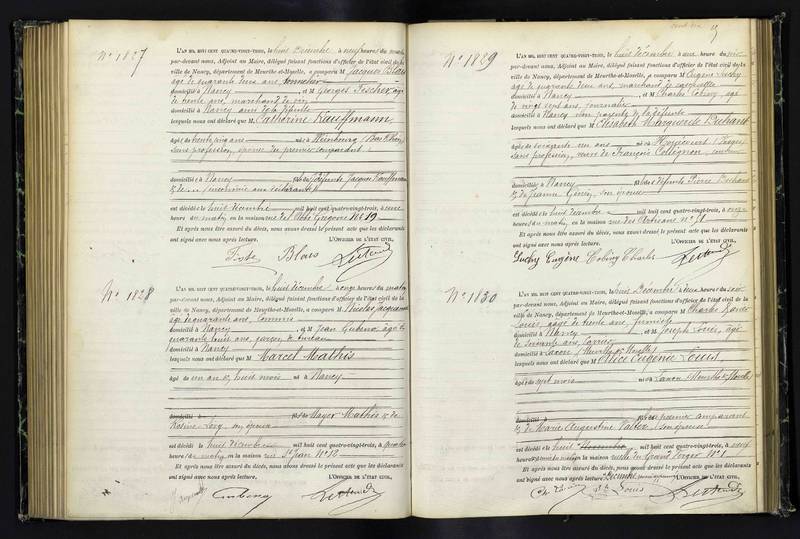 N° 1827
L'AN MIL HUIT CENT QUATRE-VINGT-TROIS, le huit Décembre à neuf heures du matin
par-devant nous, Adjoint au Maire, délégué faisant fonctions d'officier de l'état civil de la
ville de Nancy, département de Meurthe-et-Moselle, a comparu M Jacques Blais
âgé de quarante deux ans,
domicilié à Nancy et M Georges Fischer, âgé
de trente ans, marchand de vin
domicilié à Nancy ami de la défunte
lesquels nous ont déclaré que M Catherine Kauffmann,
âgée de trente cinq ans née à Weinbourg (Bas Rhin)
sans profession, épouse du premier comparant
domiciliée à Nancy fille de défunts Jacques Kauffmann
et de
est décédée le huit décembre mil huit cent quatre-vingt-trois, à une
heure du matin, en la maison rue de l'Abbé Grégoire No 19
Et après nous être assuré du décès, nous avons dressé le présent acte que les déclarants
ont signé avec nous après lecture.
L'OFFICIER DE L'ÉTAT CIVIL,
Blais
N° 1828
L'AN MIL HUIT CENT QUATRE-VINGT-TROIS, le huit décembre à onze heures du matin
par-devant nous, Adjoint au Maire, délégué faisant fonctions d'officier de l'état civil de la
ville de Nancy, département de Meurthe-et-Moselle, a comparu M Nicolas
âgé de quarante ans, Commis
domicilié à Nancy et M Jean
quarante huit ans, garçon de bureau
domicilié à Nancy
lesquels nous ont déclaré que M Marcel Mathis
âgé de un an et huit mois né à Nancy
domicilié à fils de Mayer Mathis et de
Rosine Lévy
est décédé le huit décembre mil huit cent quatre-vingt-trois, à
heures du matin, en la maison rue St Jean No 12
Et après nous être assuré du décès, nous avons dressé le présent acte que les déclarants
ont signé avec nous après lecture.
L'OFFICIER DE L'ÉTAT CIVIL,
N° 1829
L'AN MIL HUIT CENT QUATRE-VINGT-TROIS, le huit décembre à une heure du soir
par-devant nous, Adjoint au Maire, délégué faisant fonctions d'officier de l'état civil de la
ville de Nancy, département de Meurthe-et-Moselle, a comparu M Eugène Luchy
âgé de quarante deux ans, marchand de
domicilié à Nancy et M Charles Cobiny, âgé
de vingt sept ans, journalier
domicilié à Nancy non parents de la défunte
lesquels nous ont déclaré que M Elisabeth Marguerite
âgée de soixante ans née à (Vosges)
sans profession, veuve de François Collignon,
domiciliée à Nancy fille de défunts Pierre
et de Jeanne son épouse
est décédée le huit décembre mil huit cent quatre-vingt-trois, à onze
heures du matin, en la maison rue des Artisans no 51
Et après nous être assuré du décès, nous avons dressé le présent acte que les déclarants
ont signé avec nous après lecture.
L'OFFICIER DE L'ÉTAT CIVIL,
Luchy Eugène Cobiny Charles
N° 1830
L'AN MIL HUIT CENT QUATRE-VINGT-TROIS, le huit Décembre à deux heures du soir
par-devant nous, Adjoint au Maire, délégué faisant fonctions d'officier de l'état civil de la
ville de Nancy, département de Meurthe-et-Moselle, a comparu M Charles Xavier
Louis, âgé de trente ans, fumiste
domicilié à Nancy et M Joseph Louis, âgé
de soixante ans, Carrier
domicilié à Laxou (Meurthe et Moselle)
lesquels nous ont déclaré que M Alice Eugénie Louis
âgée de sept mois née à Laxou (Meurthe et Moselle)
domicilié à fille du premier comparant
et de Marie Augustine son épouse
est décédée le huit mil huit cent quatre-vingt-trois, à neuf
heures du matin en la maison ruelle du Grand Verger No 1
Et après nous être assuré du décès, nous avons dressé le présent acte que les déclarants
ont signé avec nous après lecture.
L'OFFICIER DE L'ÉTAT CIVIL,
Louis